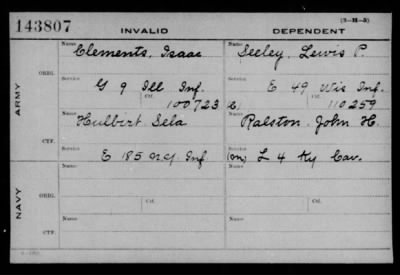 143807 INVALID DEPENDENT (3-H-3)
Name Clements, Isaac Name Seeley, Lewis P.
ARMY
ORIG. Service G 9 Ill Inf. Service E 49 Wis Inf.
Ctf. 100723 Ctf. 110259
Name Hulbert Sela Name Ralston John H.
CTF. Service E 185 N.Y. Inf Service L 4 Ky Cav.
NAVY
Name Name
ORIG. Service Service
Ctf. Ctf.
Name Name
CTF. Service Service